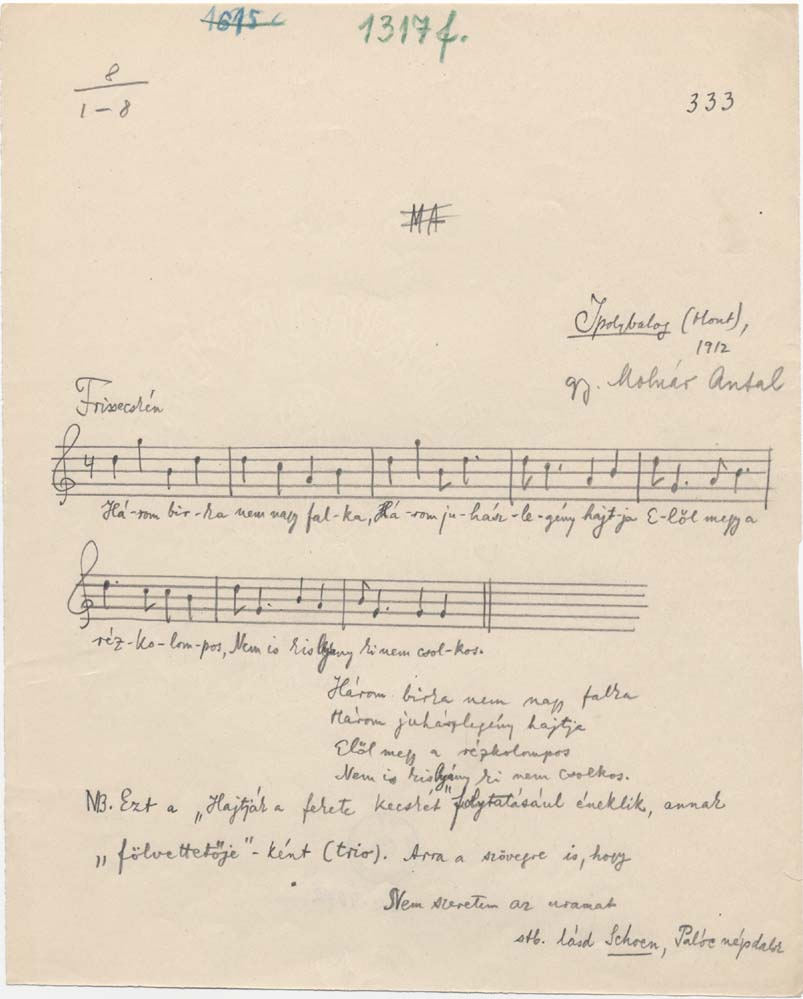 1615c
1317f.
8
1-8
333
MA
Ipolybalog (Hont),
1912
gy. Molnár Antal
Frissecskén
4
Há-rom bir-ka nem nagy fal-ka, Há-rom ju-hász-le-gény hajt-ja E-lől megy a
réz-ko-lom-pos, Nem is kis lyány ki nem csol-kos.
Három birka nem nagy falka
Három juhászlegény hajtja
Elől megy a rézkolompos
Nem is kis lyány ki nem csolkos.
NB. Ezt a „Hajtják a fekete kecskét" folytatásául éneklik, annak
„fölvettetője"-ként (trio). Arra a szövegre is, hogy
Nem szeretem az uramat
stb. lásd Schoen, Palóc népdalok